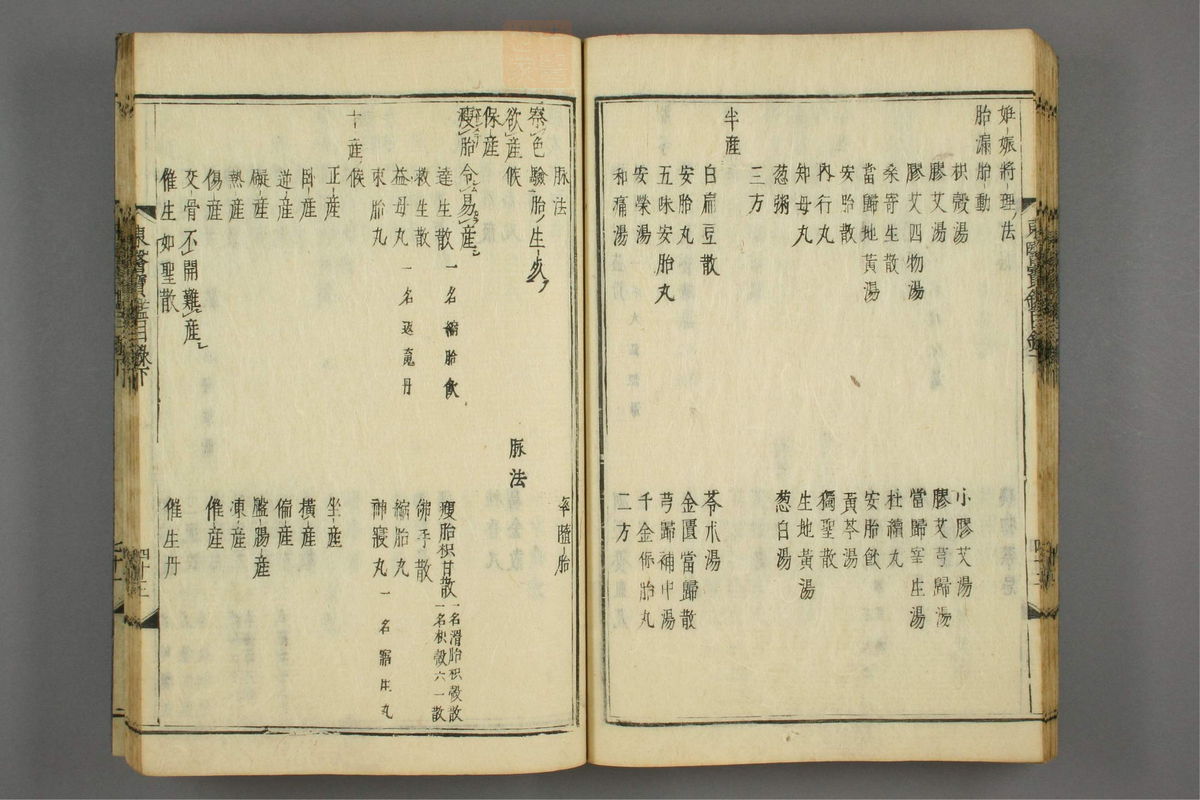 妊娠將理法
胎漏胎動
枳殼湯 小膠艾湯
膠艾湯 膠艾芎歸湯
膠艾四物湯 當歸寄生湯
桑寄生散 杜續丸
當歸地黃湯 安胎飮
安胎散 黃芩湯
內行丸 獨聖散
知母丸 生地黃湯
葱粥 葱白湯
三方
半産
白扁豆散 芩朮湯
安胎丸 金匱當歸散
五味安胎丸 芎歸補中湯
安榮湯 千金保胎丸
和痛湯 二方
脉法 隨胎
察色驗胎生死
欲産候 脉法
保産
瘦胎令易産
瘦胎枳甘散 一名滑胎枳殼散 一名枳殼六一散
達生散 一名縮胎飮
救生散 佛手散
益母丸 一名返魂丹 縮胎丸
束胎丸 神寢丸 一名
十産候
正産 坐産
臥産 橫産
逆産 偏産
礙産 盤腸産
熱産 凍産
傷産 催産
交骨不開難産
催生如聖散 催生丹
東醫寶鑑目錄下 四十三